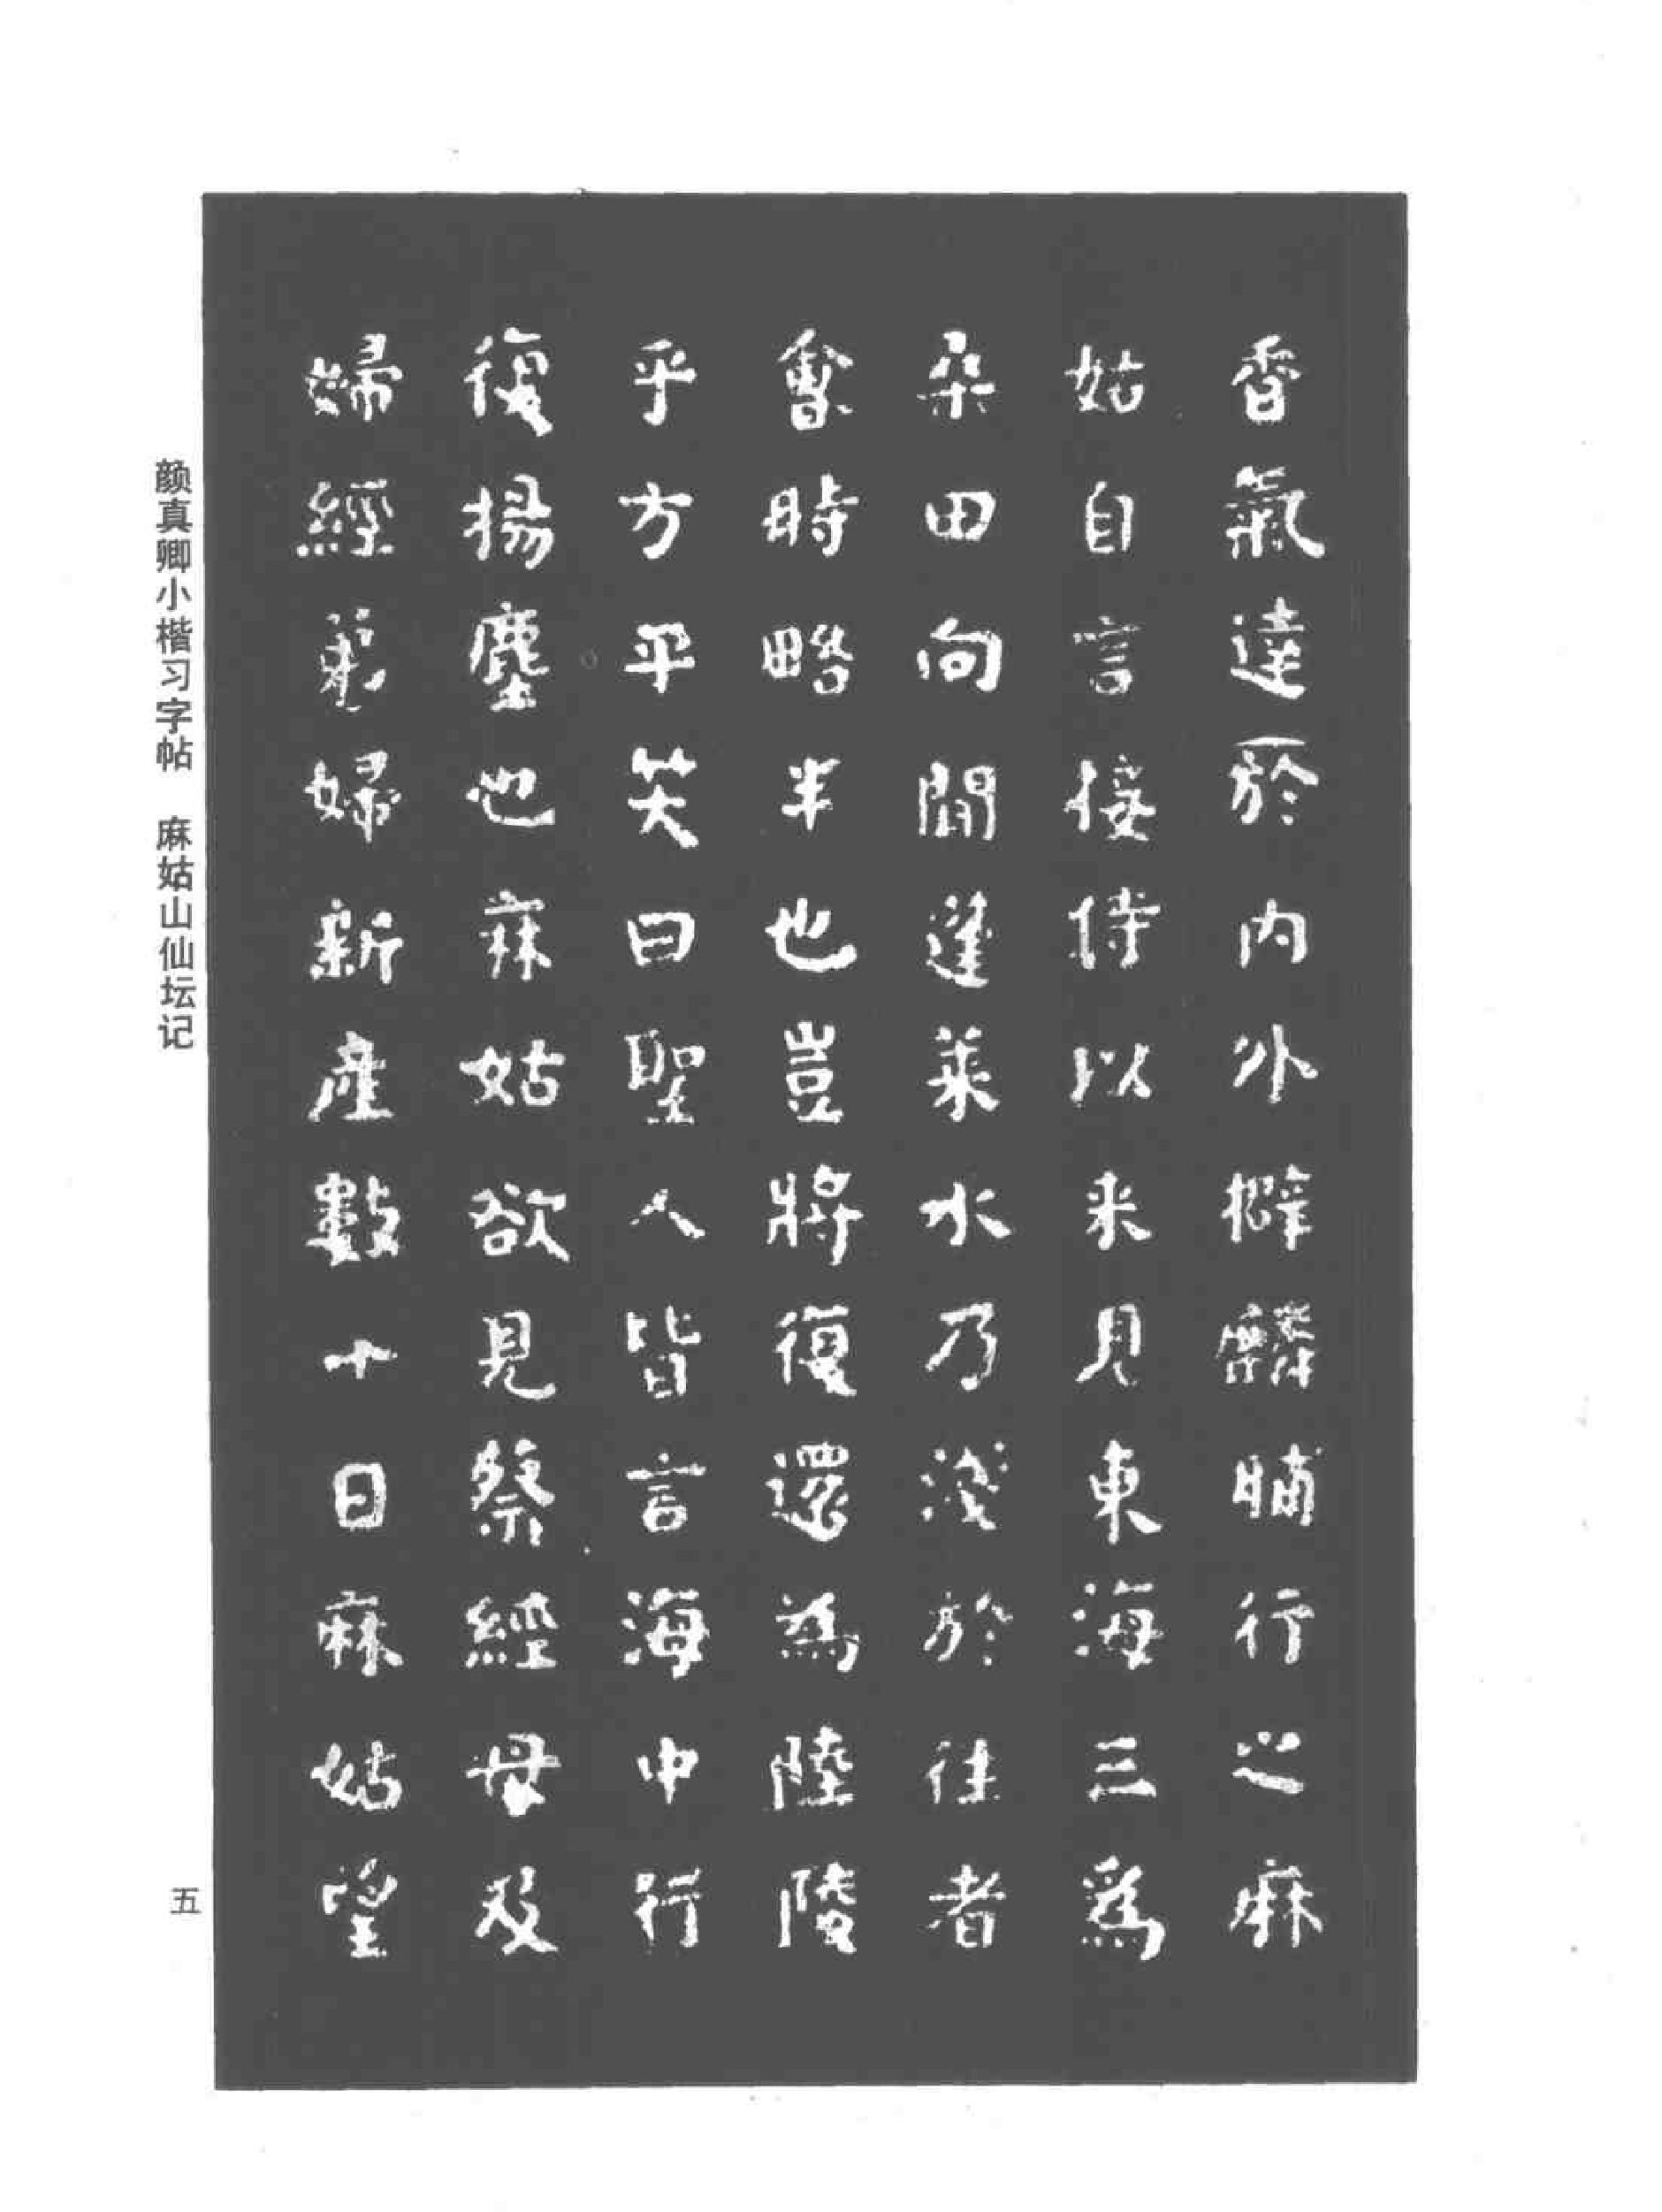 香氣達於內外擗麟脯行之麻
姑自言接侍以来見東海三爲
桒田向間蓬萊水乃淺於往者
會時略半也豈將復還為陸陵
乎方平笑曰聖人皆言海中行
復揚塵也麻姑欲見蔡經母及
婦經弟婦新產數十日麻姑望
颜真卿小楷习字帖 麻姑山仙坛记
五